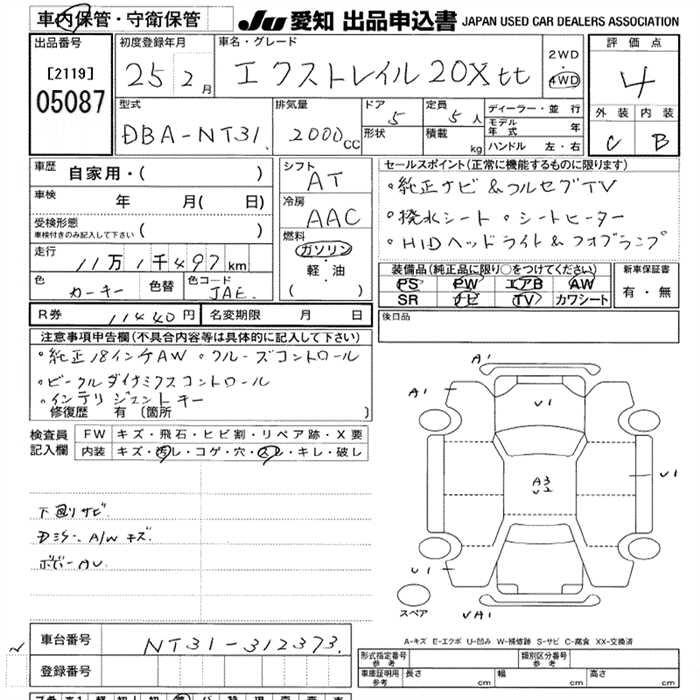 車内保管・守衛保管
JU 愛知 出品申込書 JAPAN USED CAR DEALERS ASSOCIATION
出品番号
[2119]
05087
初度登録年月
25 2月
車名・グレード
エクストレイル 20Xtt
2WD
・
4WD
評価点
4
外装 内装
C B
型式
DBA-NT31.
排気量
2000cc
ドア
5
形状
定員
5人
積載
kg
ディーラー・並行
モデル年式 年
ハンドル 左・右
車歴
自家用・( )
車検
年 月( 日)
受検形態
車検付きのみ記入して下さい ( )
走行
11万1千497km
色
ガーキー
色替
色コード
JAE.
シフト
AT
冷房
AAC
燃料
ガソリン
・
軽・油
( )
セールスポイント(正常に機能するものに限ります)
・純正ナビ&フルセグTV
・撥水シート ・シートヒーター
・HIDヘッドライト&フォグランプ
装備品(純正品に限り○をつけてください)
PS PW エアB AW
SR ナビ TV カワシート
新車保証書
有・無
後日品
R券 11440円
名変期限 月 日
注意事項申告欄(不具合内容等は具体的に記入して下さい)
・純正18インチAW ・クルーズコントロール
・ビークルダイナミクスコントロール
・インテリジェントキー
修復歴 有 〔箇所 〕
検査員記入欄
FW キズ・飛石・ヒビ割・リペア跡・X要
内装 キズ・汚レ・コゲ・穴・スレ・キレ・破レ
下回りサビ
A/W キズ.
A1
A1
U1
A3
U2
U1
U1
UA1
スペア
A-キズ E-エクボ U-凹み W-補修跡 S-サビ C-腐食 XX-交換済
車台番号
NT31-312373.
登録番号
形式指定番号 参考
類別区分番号 参考
車庫証明用 参考 長さ cm 幅 cm 高さ cm